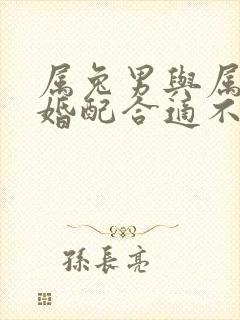 属兔男與属
婚配合適不
孫長亮